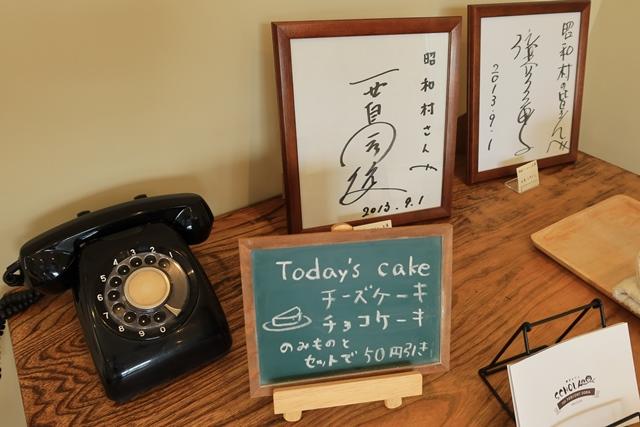 昭和村さんへ
2013.9.1
昭和村の皆さんへ
2013.9.1
Today's cake
チーズケーキ
チョコケーキ
のみものと
セットで 50円引き
1
2
3
4
5
6
7
8
9
0